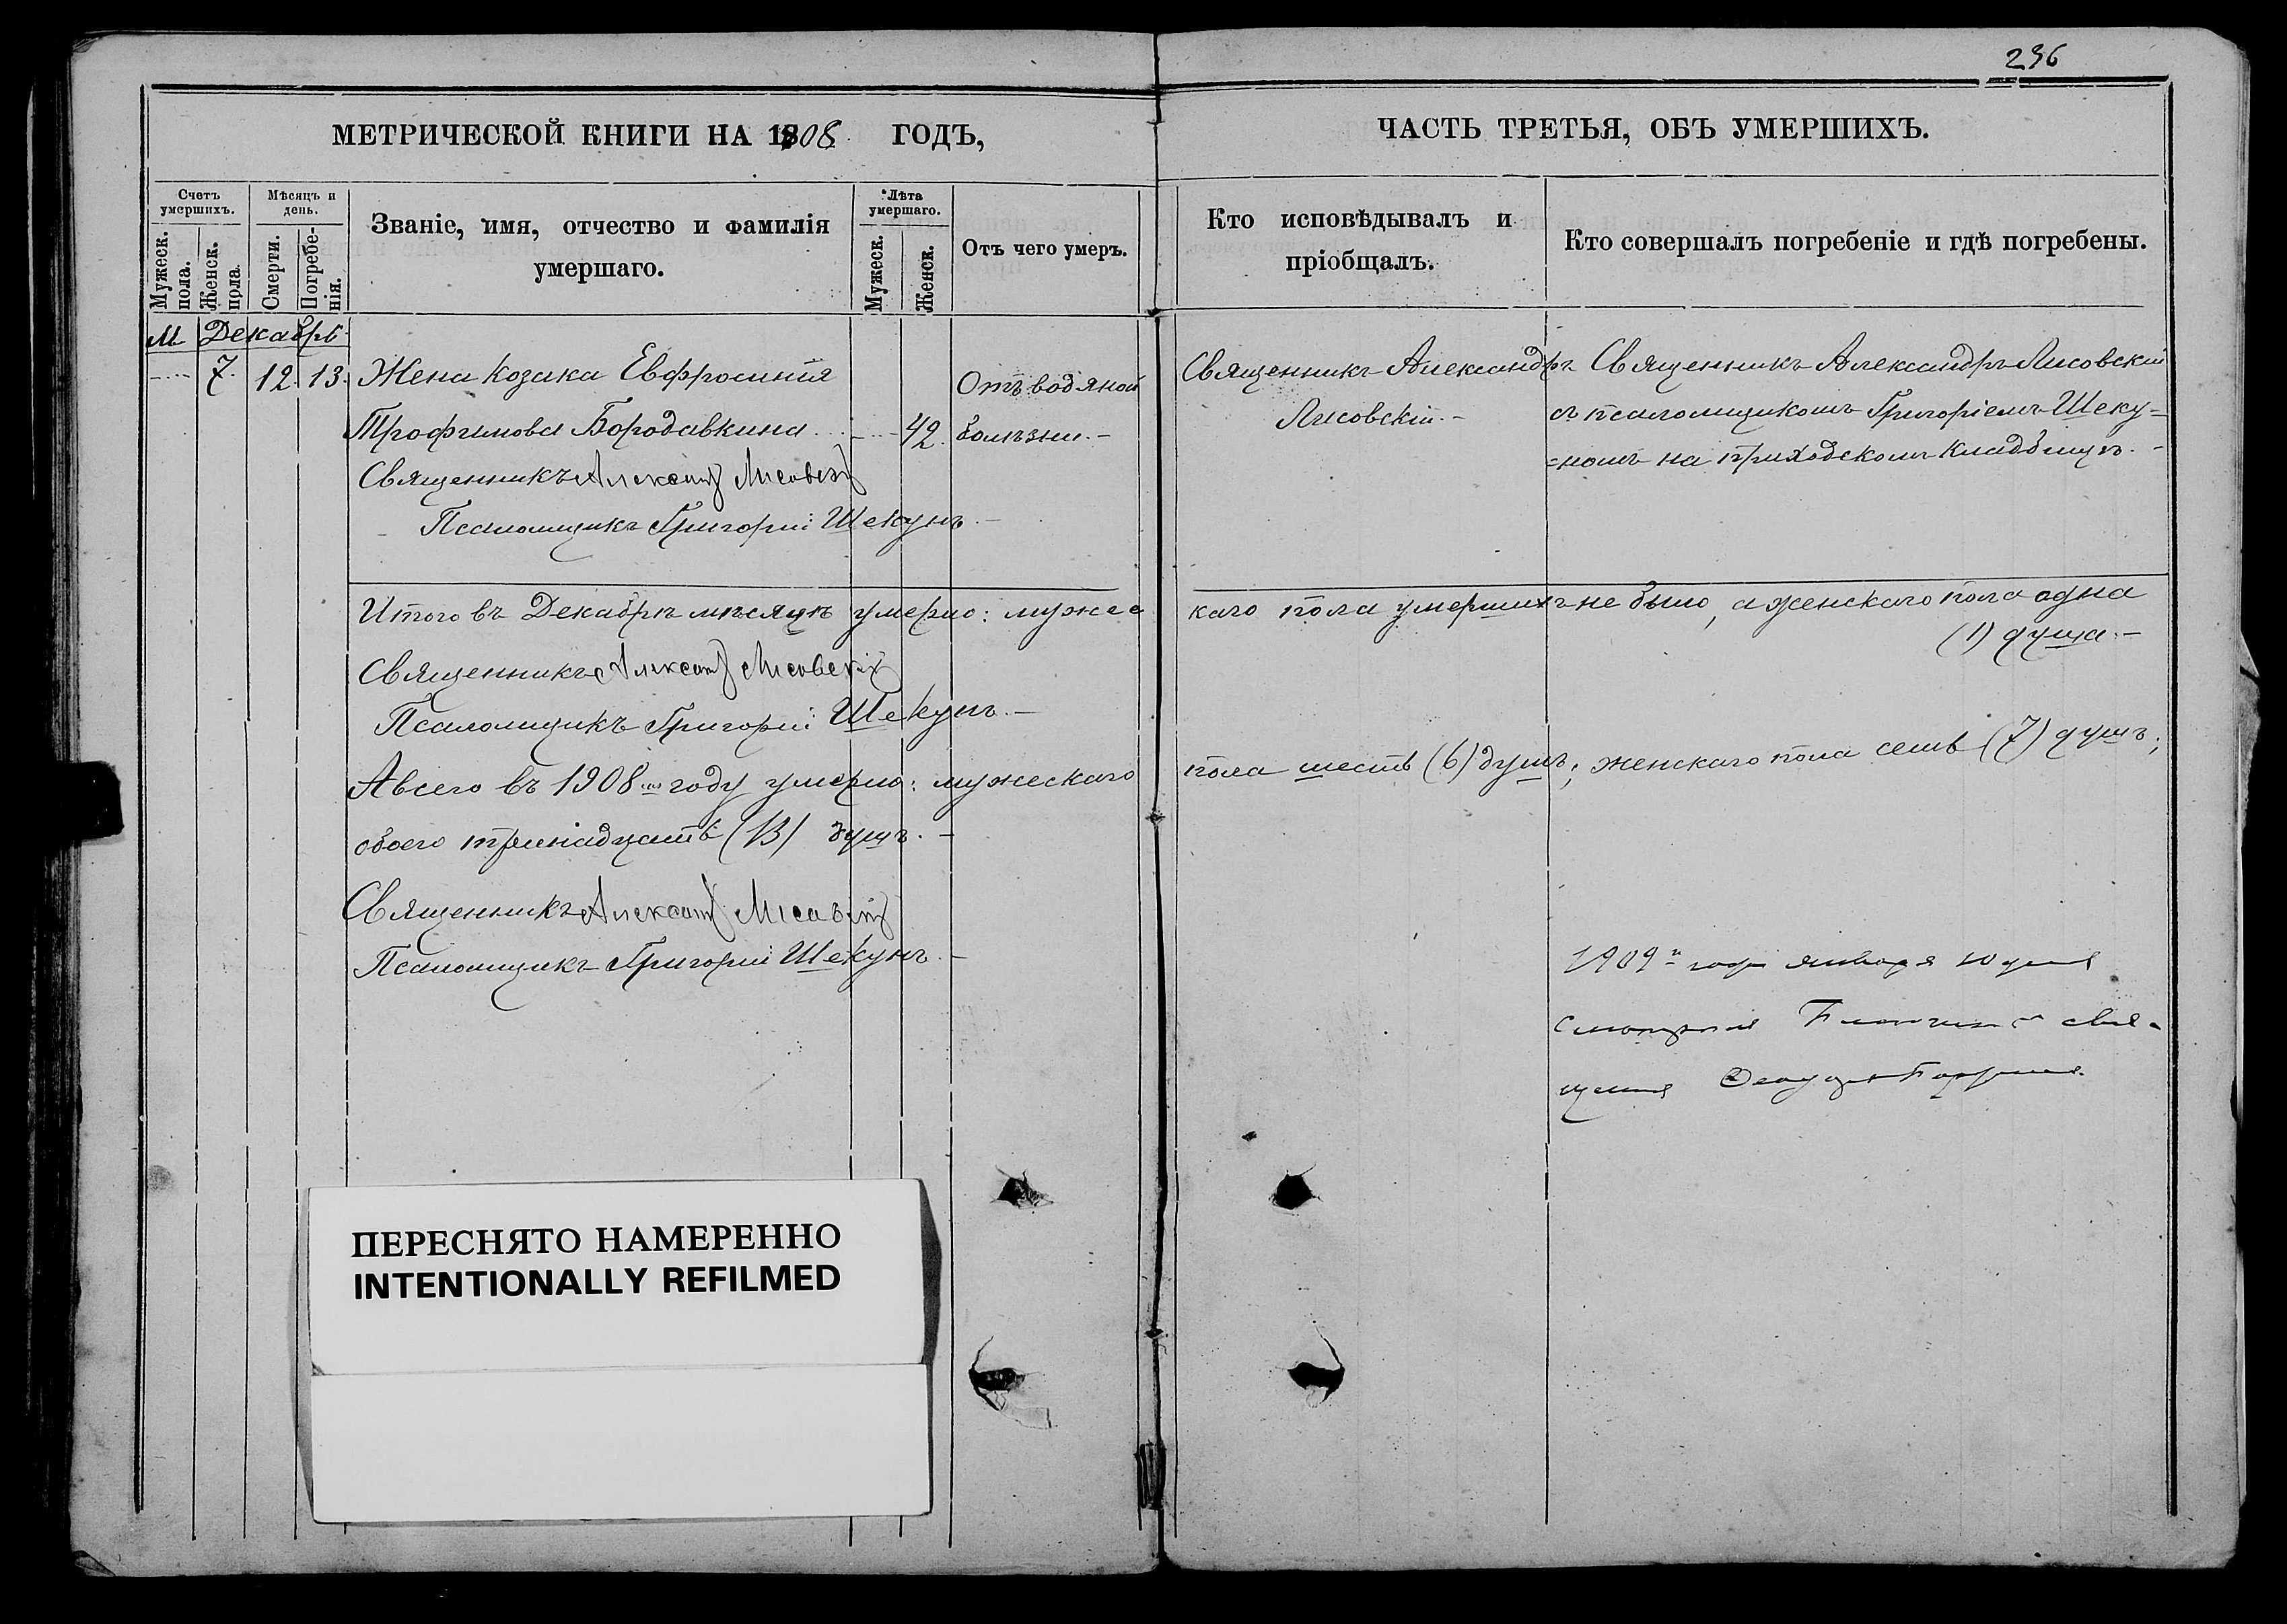 236
МЕТРИЧЕСКОЙ КНИГИ НА 1908 ГОДЪ,
ЧАСТЬ ТРЕТЬЯ, ОБЪ УМЕРШИХЪ.
Счетъ умершихъ.
Мужеск. пола.
Женск. пола.
Мѣсяцъ и день.
Смерти.
Погребенія.
Званіе, имя, отчество и фамилія
умершаго.
Лѣта умершаго.
Мужеск.
Женск.
Отъ чего умеръ.
Кто исповѣдывалъ и
пріобщалъ.
Кто совершалъ погребеніе и гдѣ погребены.
М. Декабрь
7. 12. 13. Жена козака Евфросинія
Трофимова Бородавкина 42.
Отъ водяной
болѣзни. –
Священникъ Александръ
Лисовскій. –
Священникъ Александръ Лисовскій
съ псаломщикомъ Григоріемъ Шеку=
=номъ на приходскомъ кладбищѣ. –
Священникъ Александ Лисовскій
Псаломщикъ Григорій Шекунъ. –
Итого въ Декабрѣ мѣсяцѣ умерло: мужес
каго пола умершихъ не было, а женскаго пола одна
(1) душа. –
Священникъ Александ Лисовскій
Псаломщикъ Григорій Шекунъ. –
А всего въ 1908 м году умерло: мужескаго
пола шесть (6) душъ; женскаго пола семь (7) душъ;
обоего тринадцать (13) душъ. –
Священникъ Александ Лисовскій
Псаломщикъ Григорій Шекунъ. –
1909 года января 10 дня
свя-
ПЕРЕСНЯТО НАМЕРЕННО
INTENTIONALLY REFILMED